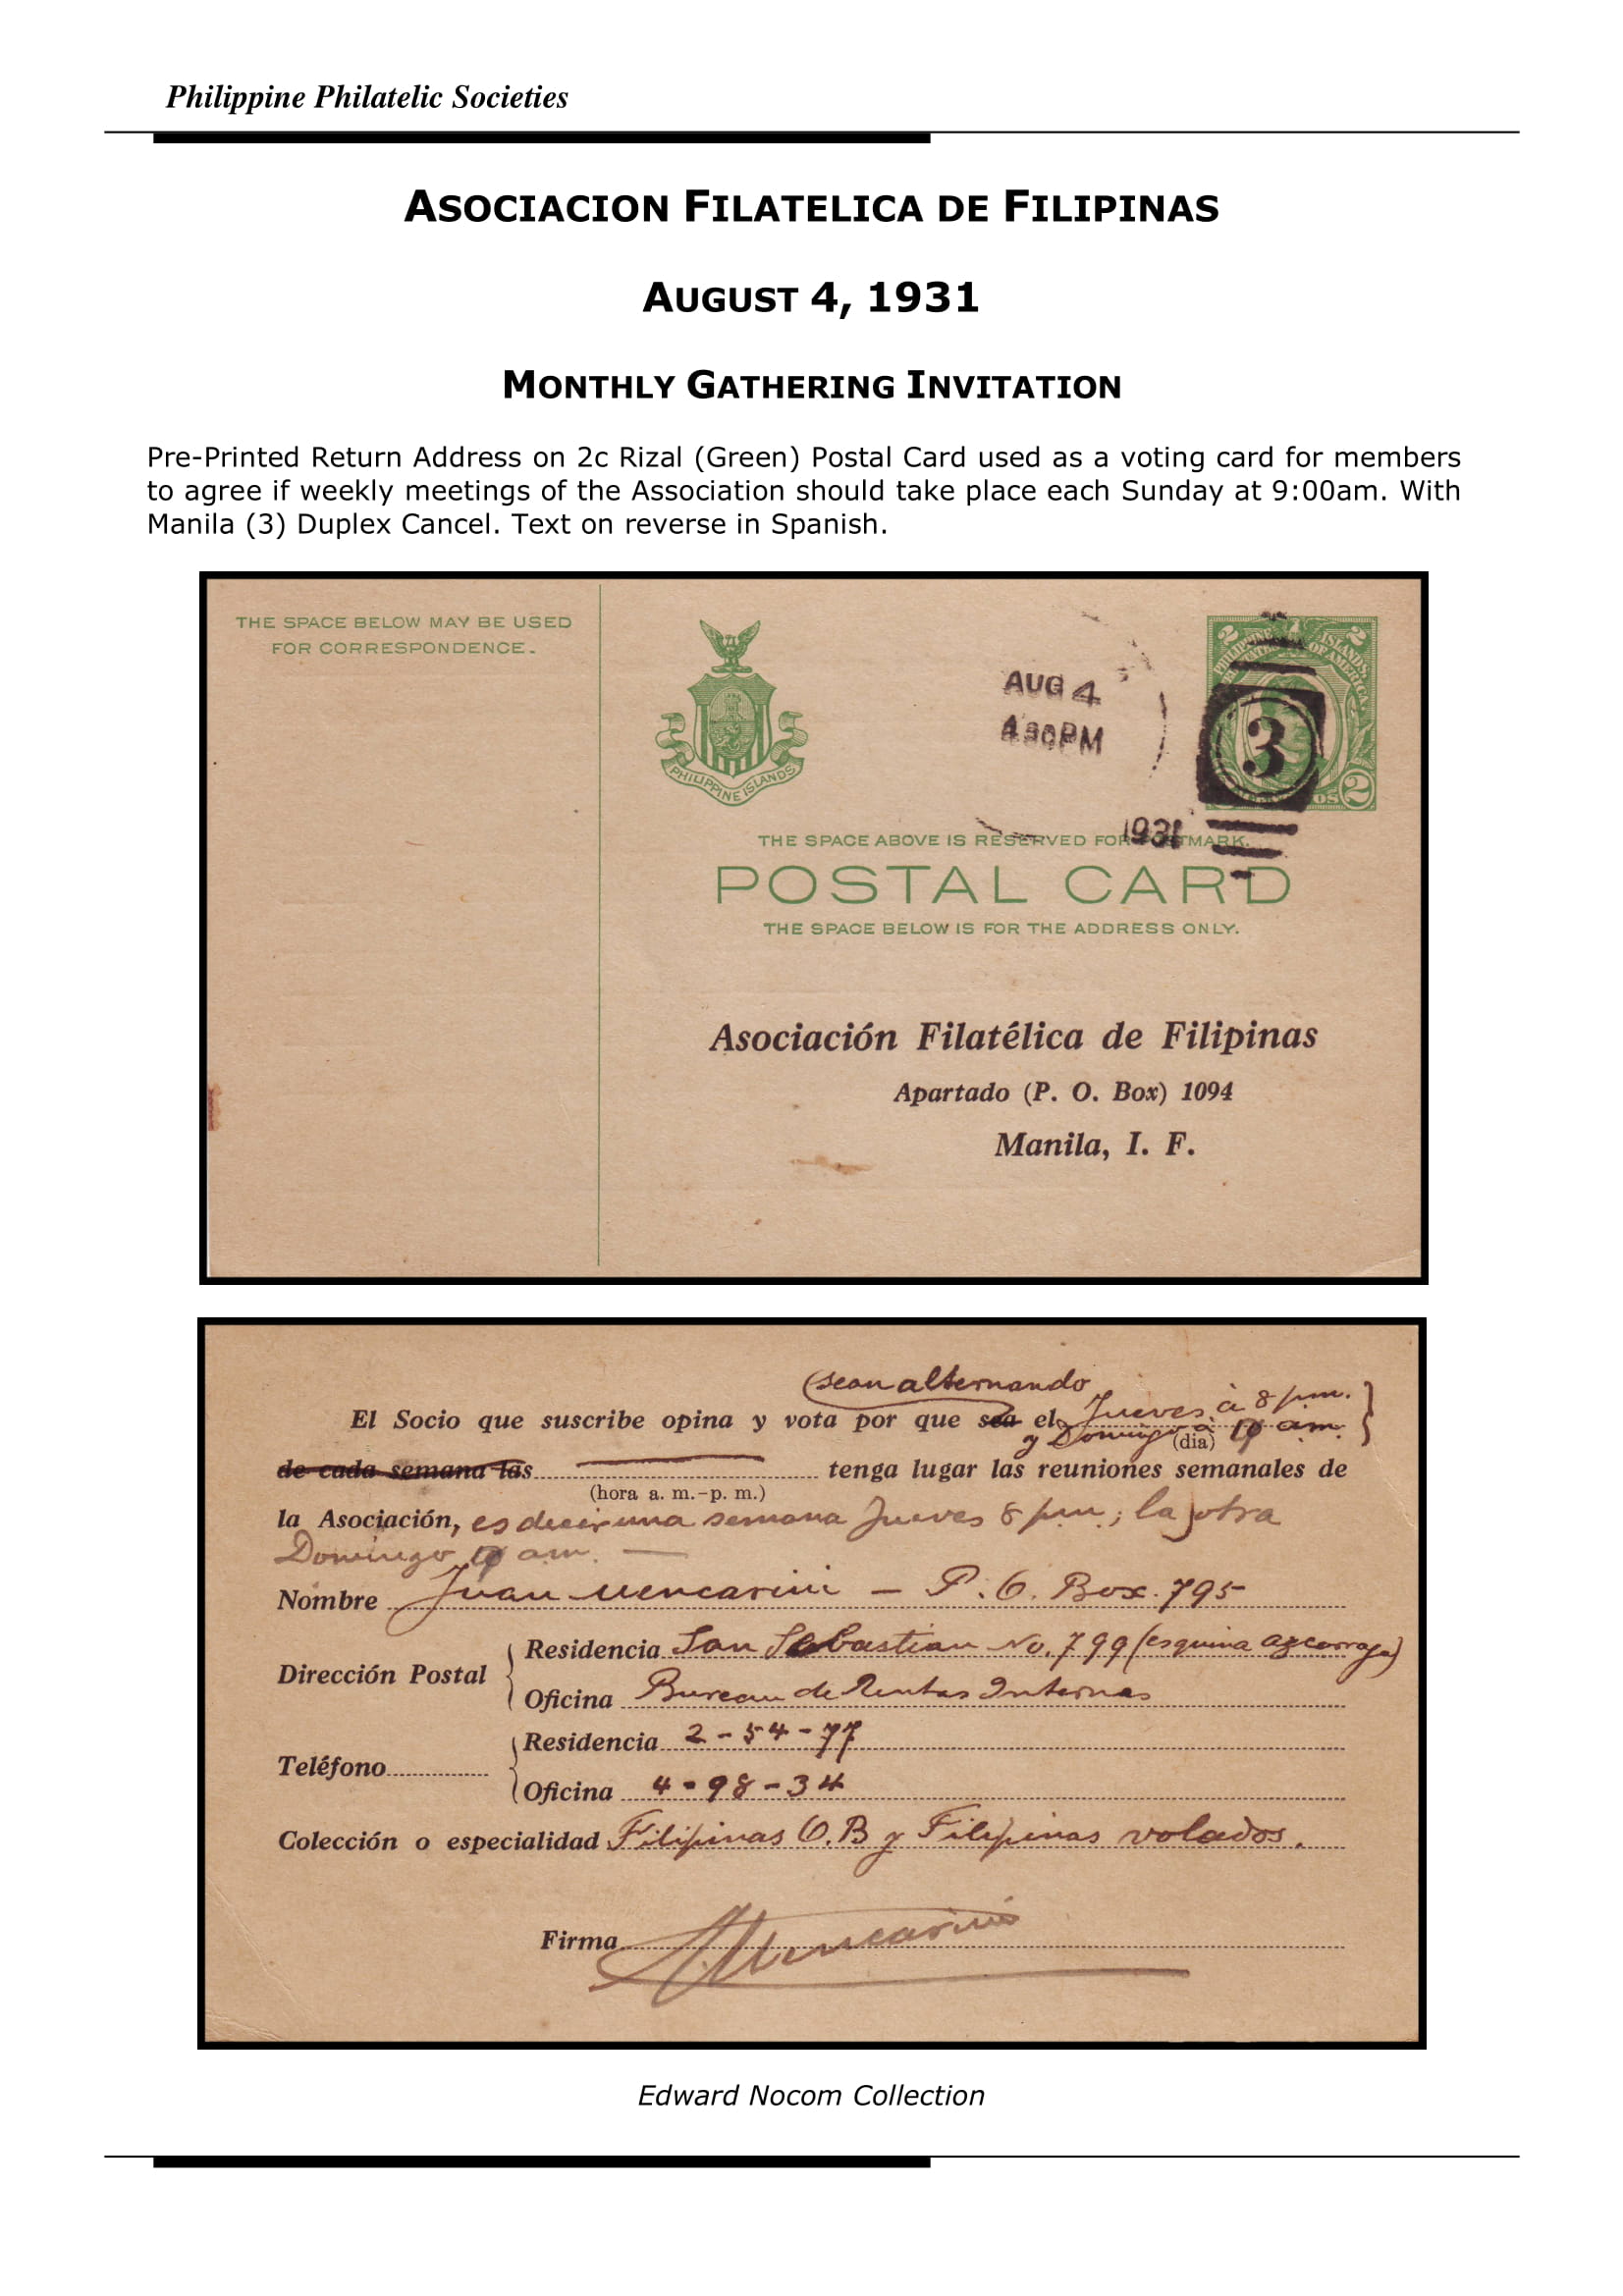 Philippine Philatelic Societies
ASOCIACION FILATELICA DE FILIPINAS
AUGUST 4, 1931
MONTHLY GATHERING INVITATION
Pre-Printed Return Address on 2c Rizal (Green) Postal Card used as a voting card for members
to agree if weekly meetings of the Association should take place each Sunday at 9:00am. With
Manila (3) Duplex Cancel. Text on reverse in Spanish.
THE SPACE BELOW MAY BE USED
FOR CORRESPONDENCE.
PHILIPPINE ISLANDS
AUG 4
4 30 PM
1931
3
2 2
PHILIPPINE ISLANDS
OF AMERICA
OS 2
THE SPACE ABOVE IS RESERVED FOR POSTMARK.
POSTAL CARD
THE SPACE BELOW IS FOR THE ADDRESS ONLY.
Asociación Filatélica de Filipinas
Apartado (P. O. Box) 1094
Manila, I. F.
(sean alternando
El Socio que suscribe opina y vota por que sea el Jueves à 8 p.m.
y Domingo à (dia) am.
de cada semana las tenga lugar las reuniones semanales de
(hora a. m.-p. m.)
la Asociación, es decir una semana Jueves 8 pm; la otra
Domingo am.
Nombre Juan Mencarini - P. O. Box 795
Dirección Postal
Residencia San Sebastian No. 799 (esquina Azcarraga)
Oficina Bureau de Rentas Internas
Teléfono
Residencia 2-54-77
Oficina 4-98-34
Colección o especialidad Filipinas O.B y Filipinas volados.
Firma JMencarini
Edward Nocom Collection